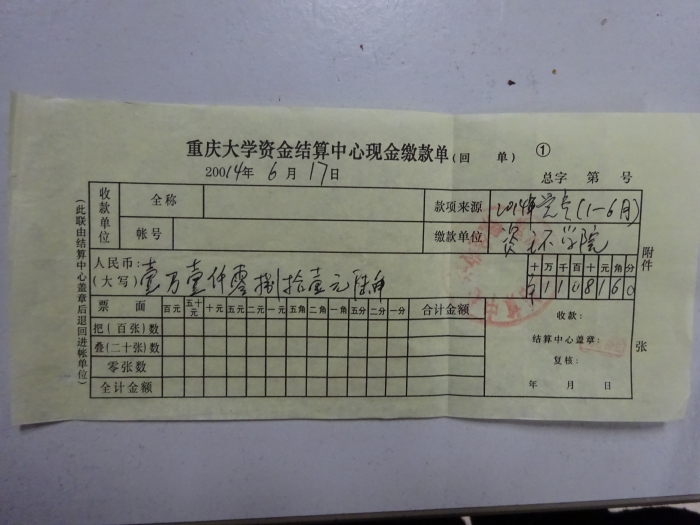 重庆大学资金结算中心现金缴款单(回 单) ①
20014年 6 月 17日
总字 第 号
收款单位 全称 款项来源 2014年党费(1-6月)
帐号 缴款单位 资环学院
人民币:
(大写) 壹万壹仟零捌拾壹元陆角
十万千百十元角分
¥1108160
票 面 百元 五十元 十元 五元 二元 一元 五角 二角 一角 五分 二分 一分 合计金额
收款:
把(百张)数
叠(二十张)数
结算中心盖章:
零张数
复核:
全计金额
年 月 日
(此联由结算中心盖章后退回进帐单位)
附件 张